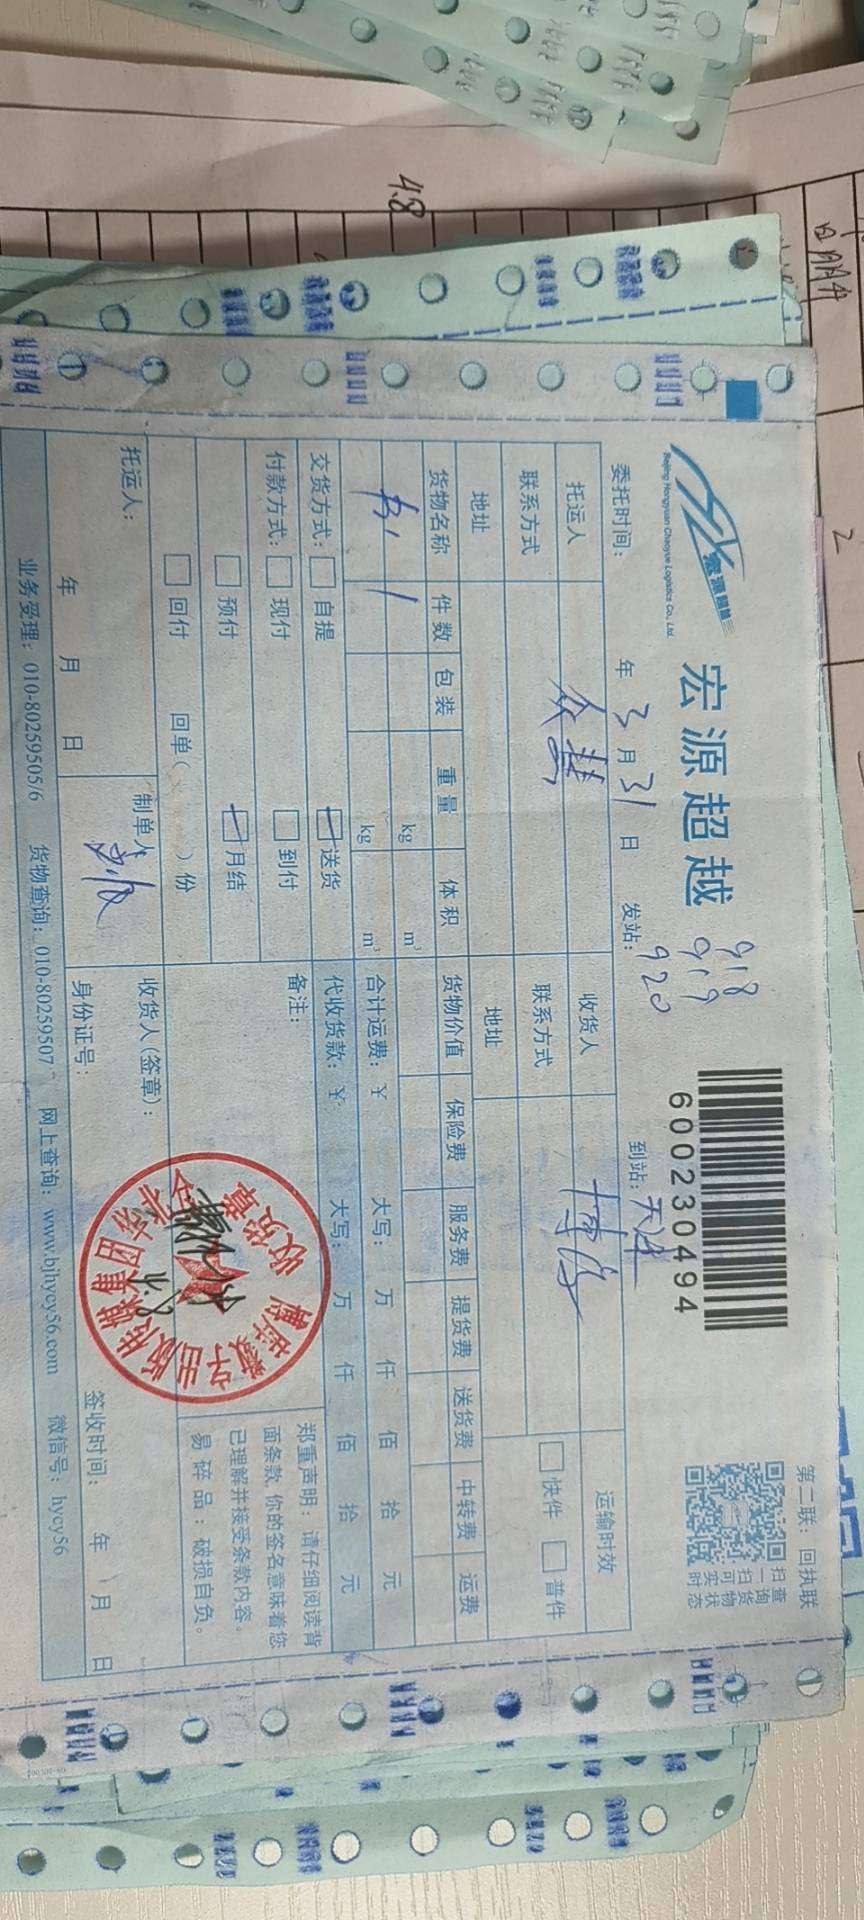 第二联：回执联
宏源超越
Beijing Hongyuan Chaoyue Logistics Co., Ltd.
918
919
920
600230494
扫一扫
查询货物
可实时状态
委托时间： 年 3 月 31 日 发站： 到站：天津
托运人 众慧 收货人 博洛 运输时效
联系方式 联系方式 快件 普件
地址 地址
货物名称 件数 包装 重量 体积 货物价值 保险费 服务费 提货费 送货费 中转费 运费
1 kg m³
kg m³ 合计运费：￥ 大写： 万 仟 佰 拾 元
交货方式： 自提 送货 代收货款：￥ 大写： 万 仟 佰 拾 元
付款方式： 现付 到付 备注：
预付 月结
回付 回单（ ）份
郑重声明：请仔细阅读背
面条款 你的签名意味着您
已理解并接受条款内容。
易碎品：破损自负。
托运人： 制单人 收货人(签章)：
年 月 日 身份证号： 签收时间： 年 月 日
4.8
收货章
业务受理：010-80259505/6 货物查询：010-80259507 网上查询：www.bjhycy56.com 微信号：hycy56
4.8
2